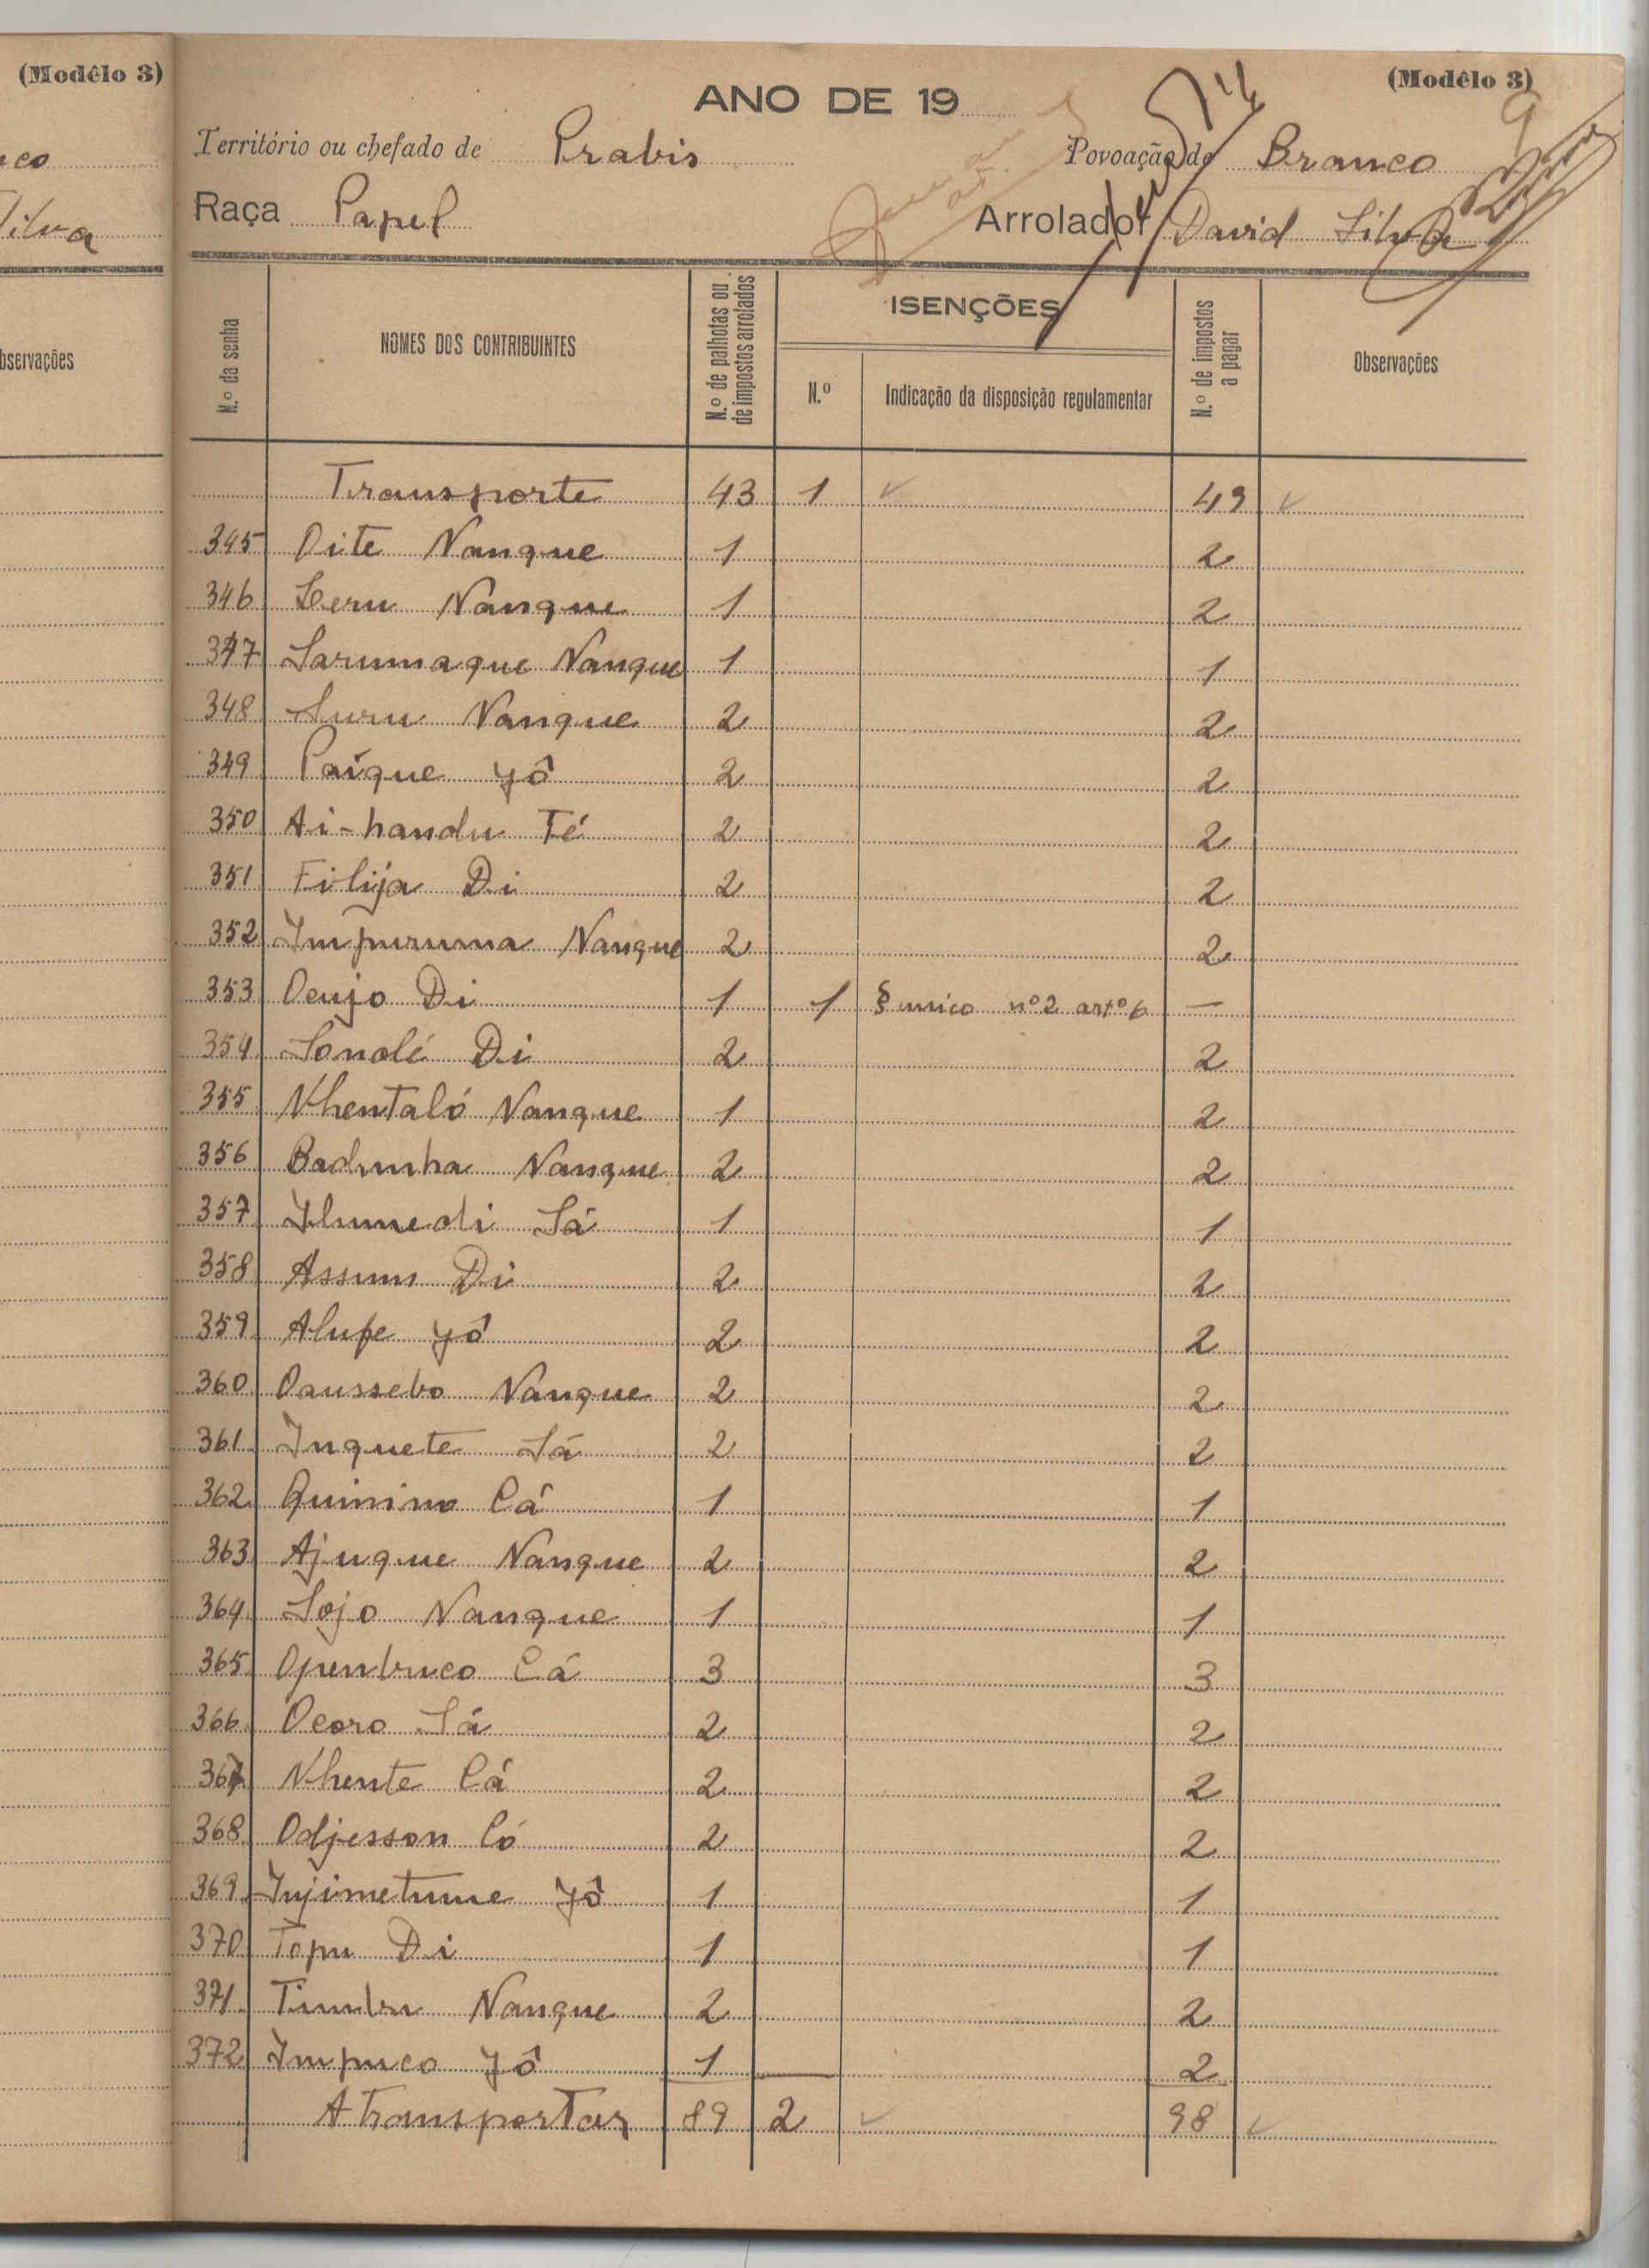 (Modêlo 3)
(Modêlo 3)
ANO DE 19
Território ou chefado de Prabis Povoação de Branco
Raça Papel Arrolador David Silva
Silva
N.º da senha
NOMES DOS CONTRIBUINTES
N.º de palhotas ou de impostos arrolados
ISENÇÕES
N.º
Indicação da disposição regulamentar
N.º de impostos a pagar
Observações
Transporte 43 1 ✓ 49 ✓
345 Oite Nanque 1 2
346 Leru Nanque 1 2
347 Sarumaque Nanque 1 1
348 Suru Nanque 2 2
349 Paíque Yô 2 2
350 Ai-handu Té 2 2
351 Filija Di 2 2
352 Impuruma Nanque 2 2
353 Ocujo Di 1 1 § unico nº 2 artº 6 —
354 Sonolé Di 2 2
355 Nhentaló Nanque 1 2
356 Badinha Nanque 2 2
357 Ilumedi Sá 1 1
358 Assum Di 2 2
359 Alupe Yô 2 2
360 Oaussebo Nanque 2 2
361 Inquete Sá 2 2
362 Quinino Cá 1 1
363 Ajuque Nanque 2 2
364 Sojo Nanque 1 1
365 Openbuco Cá 3 3
366 Ocoro Sá 2 2
367 Nhente Cá 2 2
368 Odjesson Có 2 2
369 Injimetume Yô 1 1
370 Topu Di 1 1
371 Timbu Nanque 2 2
372 Impuco Yô 1 2
A transportar 89 2 ✓ 98 ✓